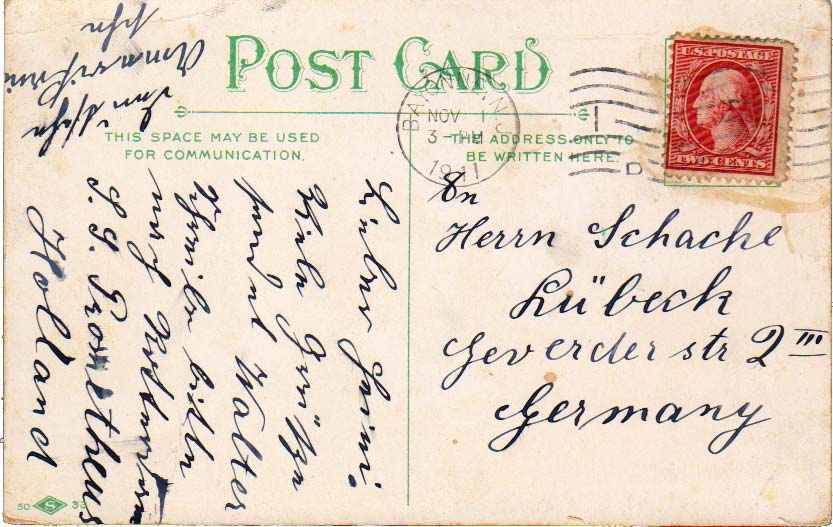 POST CARD
THIS SPACE MAY BE USED
FOR COMMUNICATION.
THE ADDRESS ONLY TO
BE WRITTEN HERE.
NOV 1
3-PM
1911
U.S. POSTAGE
TWO CENTS
D
An
Herrn Schacht
Lübeck
Geverder str 2 III
Germany
Lieber Heini!
Viele Grüße
sendet Walter
Schreibe bitte
nach Rotterdam
S.S. Prometheus
Holland
50 S 33